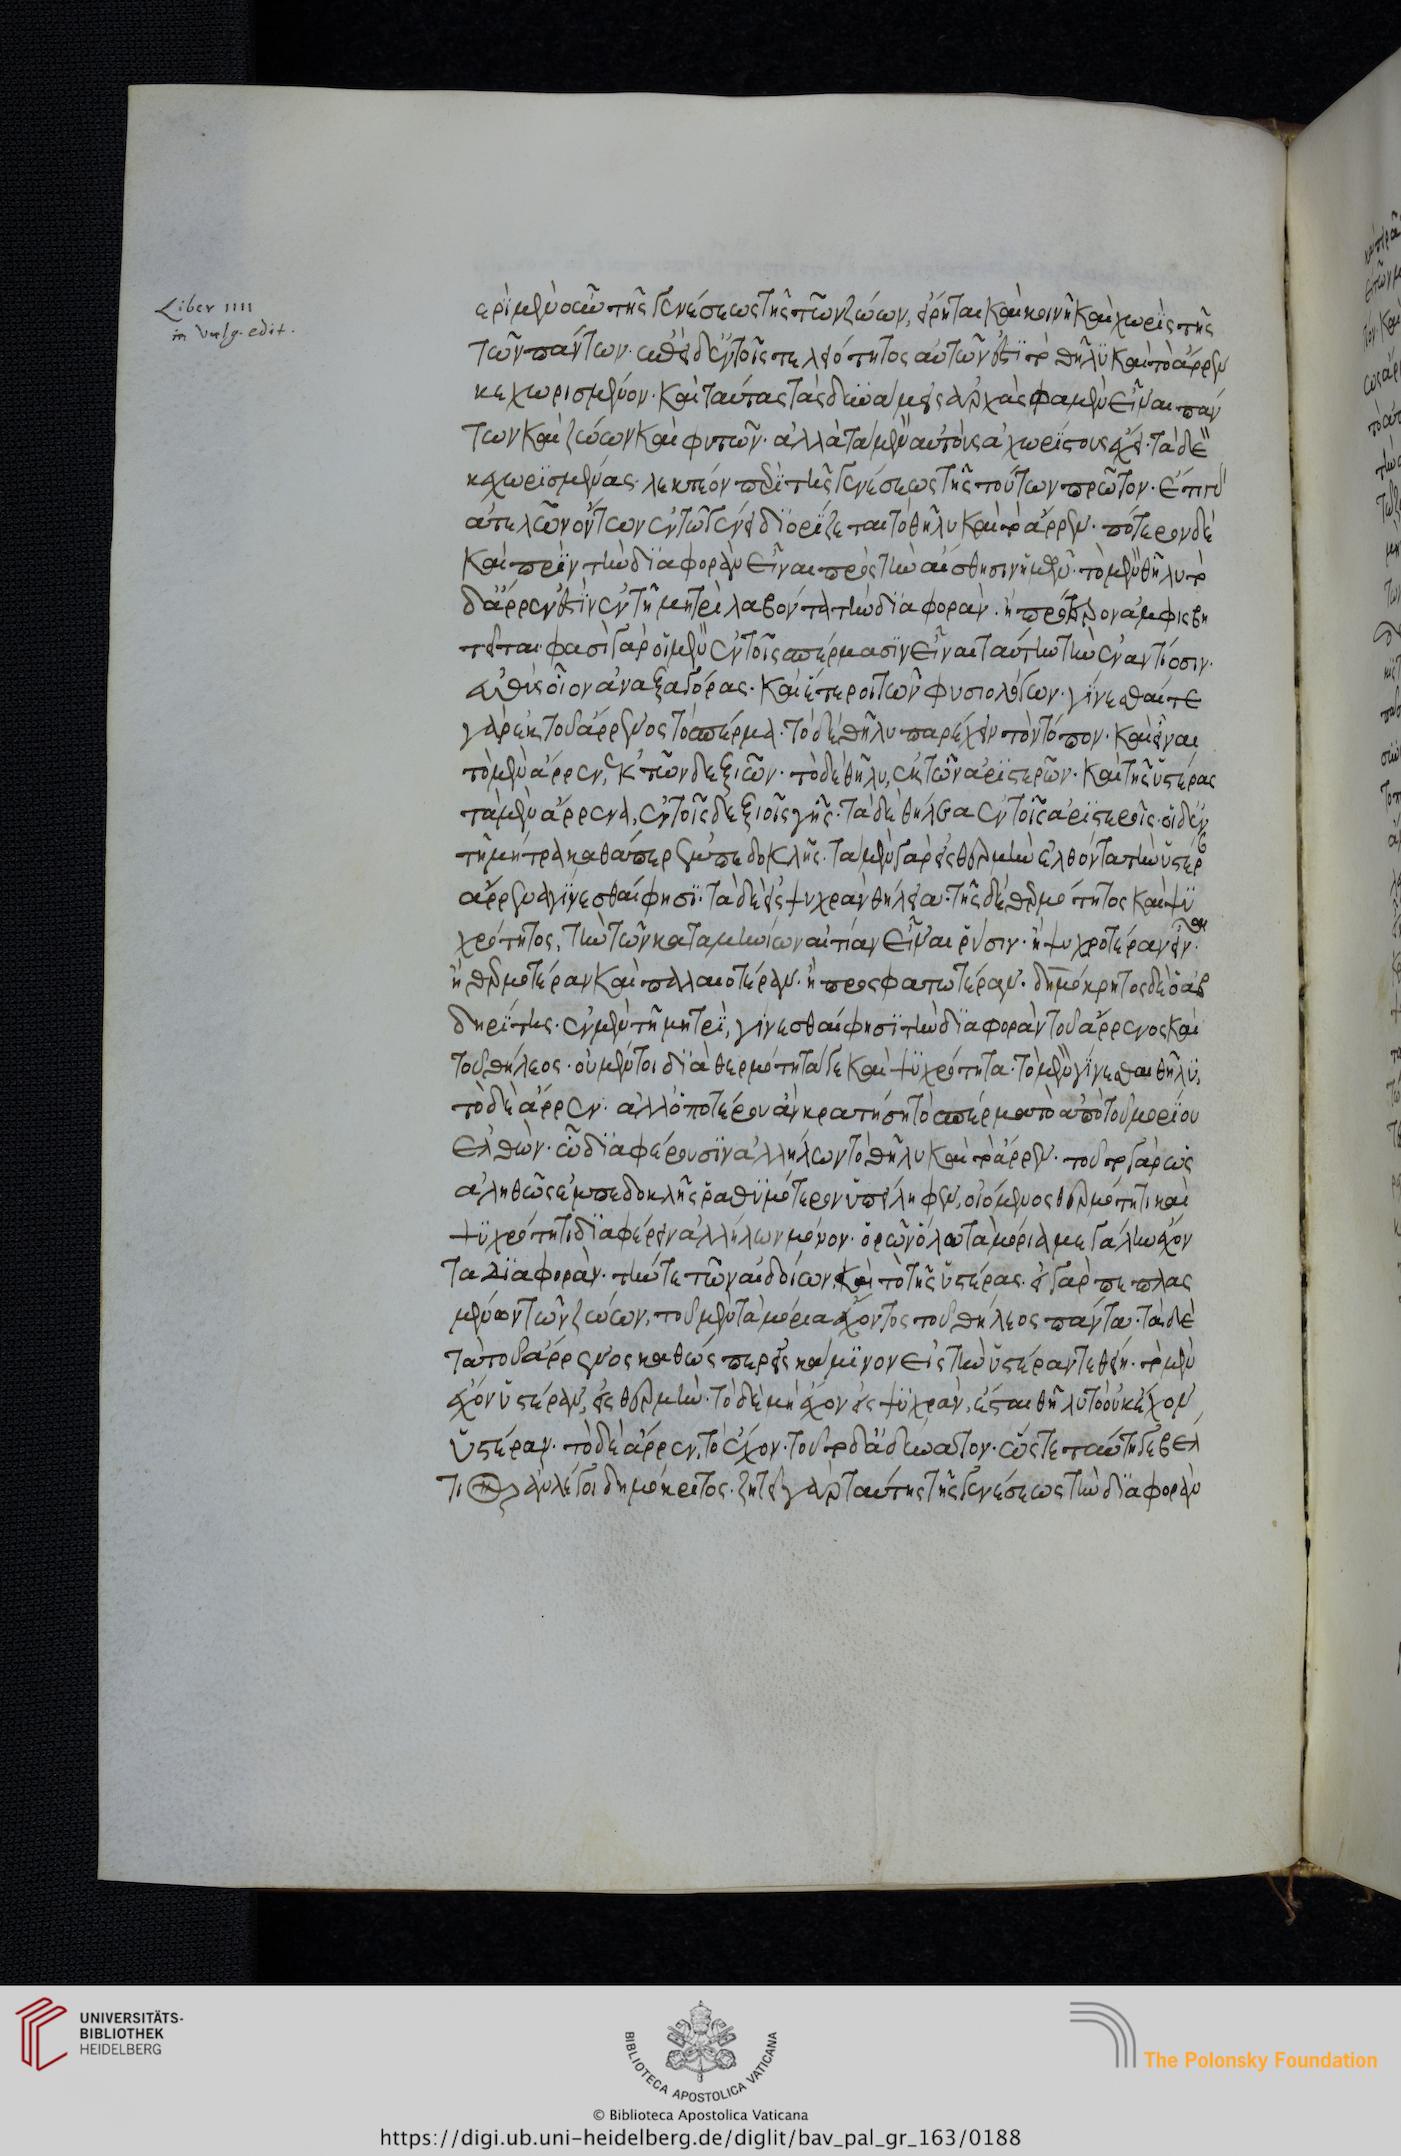 ερὶ μὲν οὖν τῆς γενέσεως τῆς τῶν ζώων, εἴρηται καὶ κοινῆ καὶ χωρὶς τῆς
τῶν πάντων. ἐπεὶ δ' ἐν τοῖς τελειότητος αὐτῶν ἐστὶ τὸ θῆλυ καὶ τὸ ἄρρεν
κεχωρισμένον. καὶ ταύτας τὰς δυνάμεις ἀρχὰς φαμὲν εἶναι πάν
των καὶ ζώων καὶ φυτῶν. ἀλλὰ τὰ μὲν αὐτοὺς ἀχωρίστους ἔχει. τὰ δὲ
κεχωρισμένας. λεκτέον περὶ τῆς γενέσεως τῆς τούτων πρῶτον. ἔτι γὰρ
ἀτελῶν ὄντων ἐν τῶ γένει διορίζεται τὸ θῆλυ καὶ τὸ ἄρρεν. πότερον δὲ
καὶ πρὶν τὴν διαφορὰν εἶναι πρὸς τὴν αἴσθησιν ἡμῶν. τὸ μὲν θῆλυ τὸ
δ' ἄρρεν ἐστὶν ἐν τῆ μητρὶ λαβόντα τὴν διαφορὰν. ἢ πρότερον ἀμφισβη
τεῖται. φασὶ γὰρ οἱ μὲν ἐν τοῖς σπέρμασιν εἶναι ταύτην τὴν ἐναντίοσιν.
εὐθὺς οἷον ἀναξαγόρας. καὶ ἕτεροι τῶν φυσιολόγων. γίνεσθαί τε
γὰρ ἐκ τοῦ ἄρρενος τὸ σπέρμα. τὸ δὲ θῆλυ παρέχειν τὸν τόπον. καὶ εἶναι
τὸ μὲν ἄρρεν, ἐκ τῶν δεξιῶν. τὸ δὲ θῆλυ, ἐκ τῶν ἀριστερῶν. καὶ τῆς ὑστέρας
τὰ μὲν ἄρρενα, ἐν τοῖς δεξιοῖς γῆς. τὰ δὲ θήλεα ἐν τοῖς ἀριστεροῖς. οἱ δ' ἐν
τῆ μήτρα καθάπερ ἐμπεδοκλῆς. τὰ μὲν γὰρ εἰς θερμὴν ἐλθόντα τὴν ὑστέρ
ἄρρενα γίνεσθαί φησι. τὰ δὲ εἰς ψυχρὰν θήλεα. τῆς δὲ θερμότητος καὶ ψυ
χρότητος, τὴν τῶν καταμηνίων αἰτίαν εἶναι ῥύσιν. ἢ ψυχροτέραν εἶναι.
ἢ θερμοτέραν καὶ παλαιοτέραν. ἢ προσφατωτέραν. δημόκρητος δὲ ὁ ἀβ
δηρίτης. ἐν μὲν τῆ μητρὶ, γίνεσθαί φησι τὴν διαφορὰν τοῦ ἄρρενος καὶ
τοῦ θήλεος. οὐ μέντοι διὰ θερμότητά γε καὶ ψυχρότητα. τὸ μὲν γίνεσθαι θῆλυ,
τὸ δὲ ἄρρεν. ἀλλ' ὁποτέρου ἂν κρατήση τὸ σπέρμα τὸ ἀπὸ τοῦ μορίου
ἐλθὼν. ὧ διαφέρουσιν ἀλλήλων τὸ θῆλυ καὶ τὸ ἄρρεν. τοῦτο γὰρ ὡς
ἀληθῶς ἐμπεδοκλῆς ῥαθυμότερον ὑπείληφεν, οἰόμενος θερμότητι καὶ
ψυχρότητι διαφέρειν ἀλλήλων μόνον. ὁρῶν ὅλα τὰ μόρια μεγάλην ἔχον
τα διαφορὰν. τήν τε τῶν αἰδοίων, καὶ τὸ τῆς ὑστέρας. εἰ γὰρ πεπλας
μένων τῶν ζώων, τοῦ μὲν τὰ μόρια ἔχοντος τοῦ θήλεος πάντα. τὰ δὲ
τὰ τοῦ ἄρρενος καθώσπερ εἰς κάμινον εἰς τὴν ὑστέραν τεθείη. τὸ μὲν
ἔχον ὑστέραν, εἰς θερμὴν. τὸ δὲ μὴ ἔχον εἰς ψυχρὰν, ἔσται θῆλυ τὸ οὐκ ἔχον
ὑστέραν. τὸ δὲ ἄρρεν, τὸ ἔχον. τοῦτο δ' ἀδύνατον. ὥστε ταύτη γε βελ
τιον ἂν λέγοι δημόκριτος. ζητεῖ γὰρ ταύτης τῆς γενέσεως τὴν διαφορὰν
Liber IIII
in vulg. edit.
UNIVERSITÄTS-
BIBLIOTHEK
HEIDELBERG
BIBLIOTECA APOSTOLICA VATICANA
© Biblioteca Apostolica Vaticana
The Polonsky Foundation
https://digi.ub.uni-heidelberg.de/diglit/bav_pal_gr_163/0188